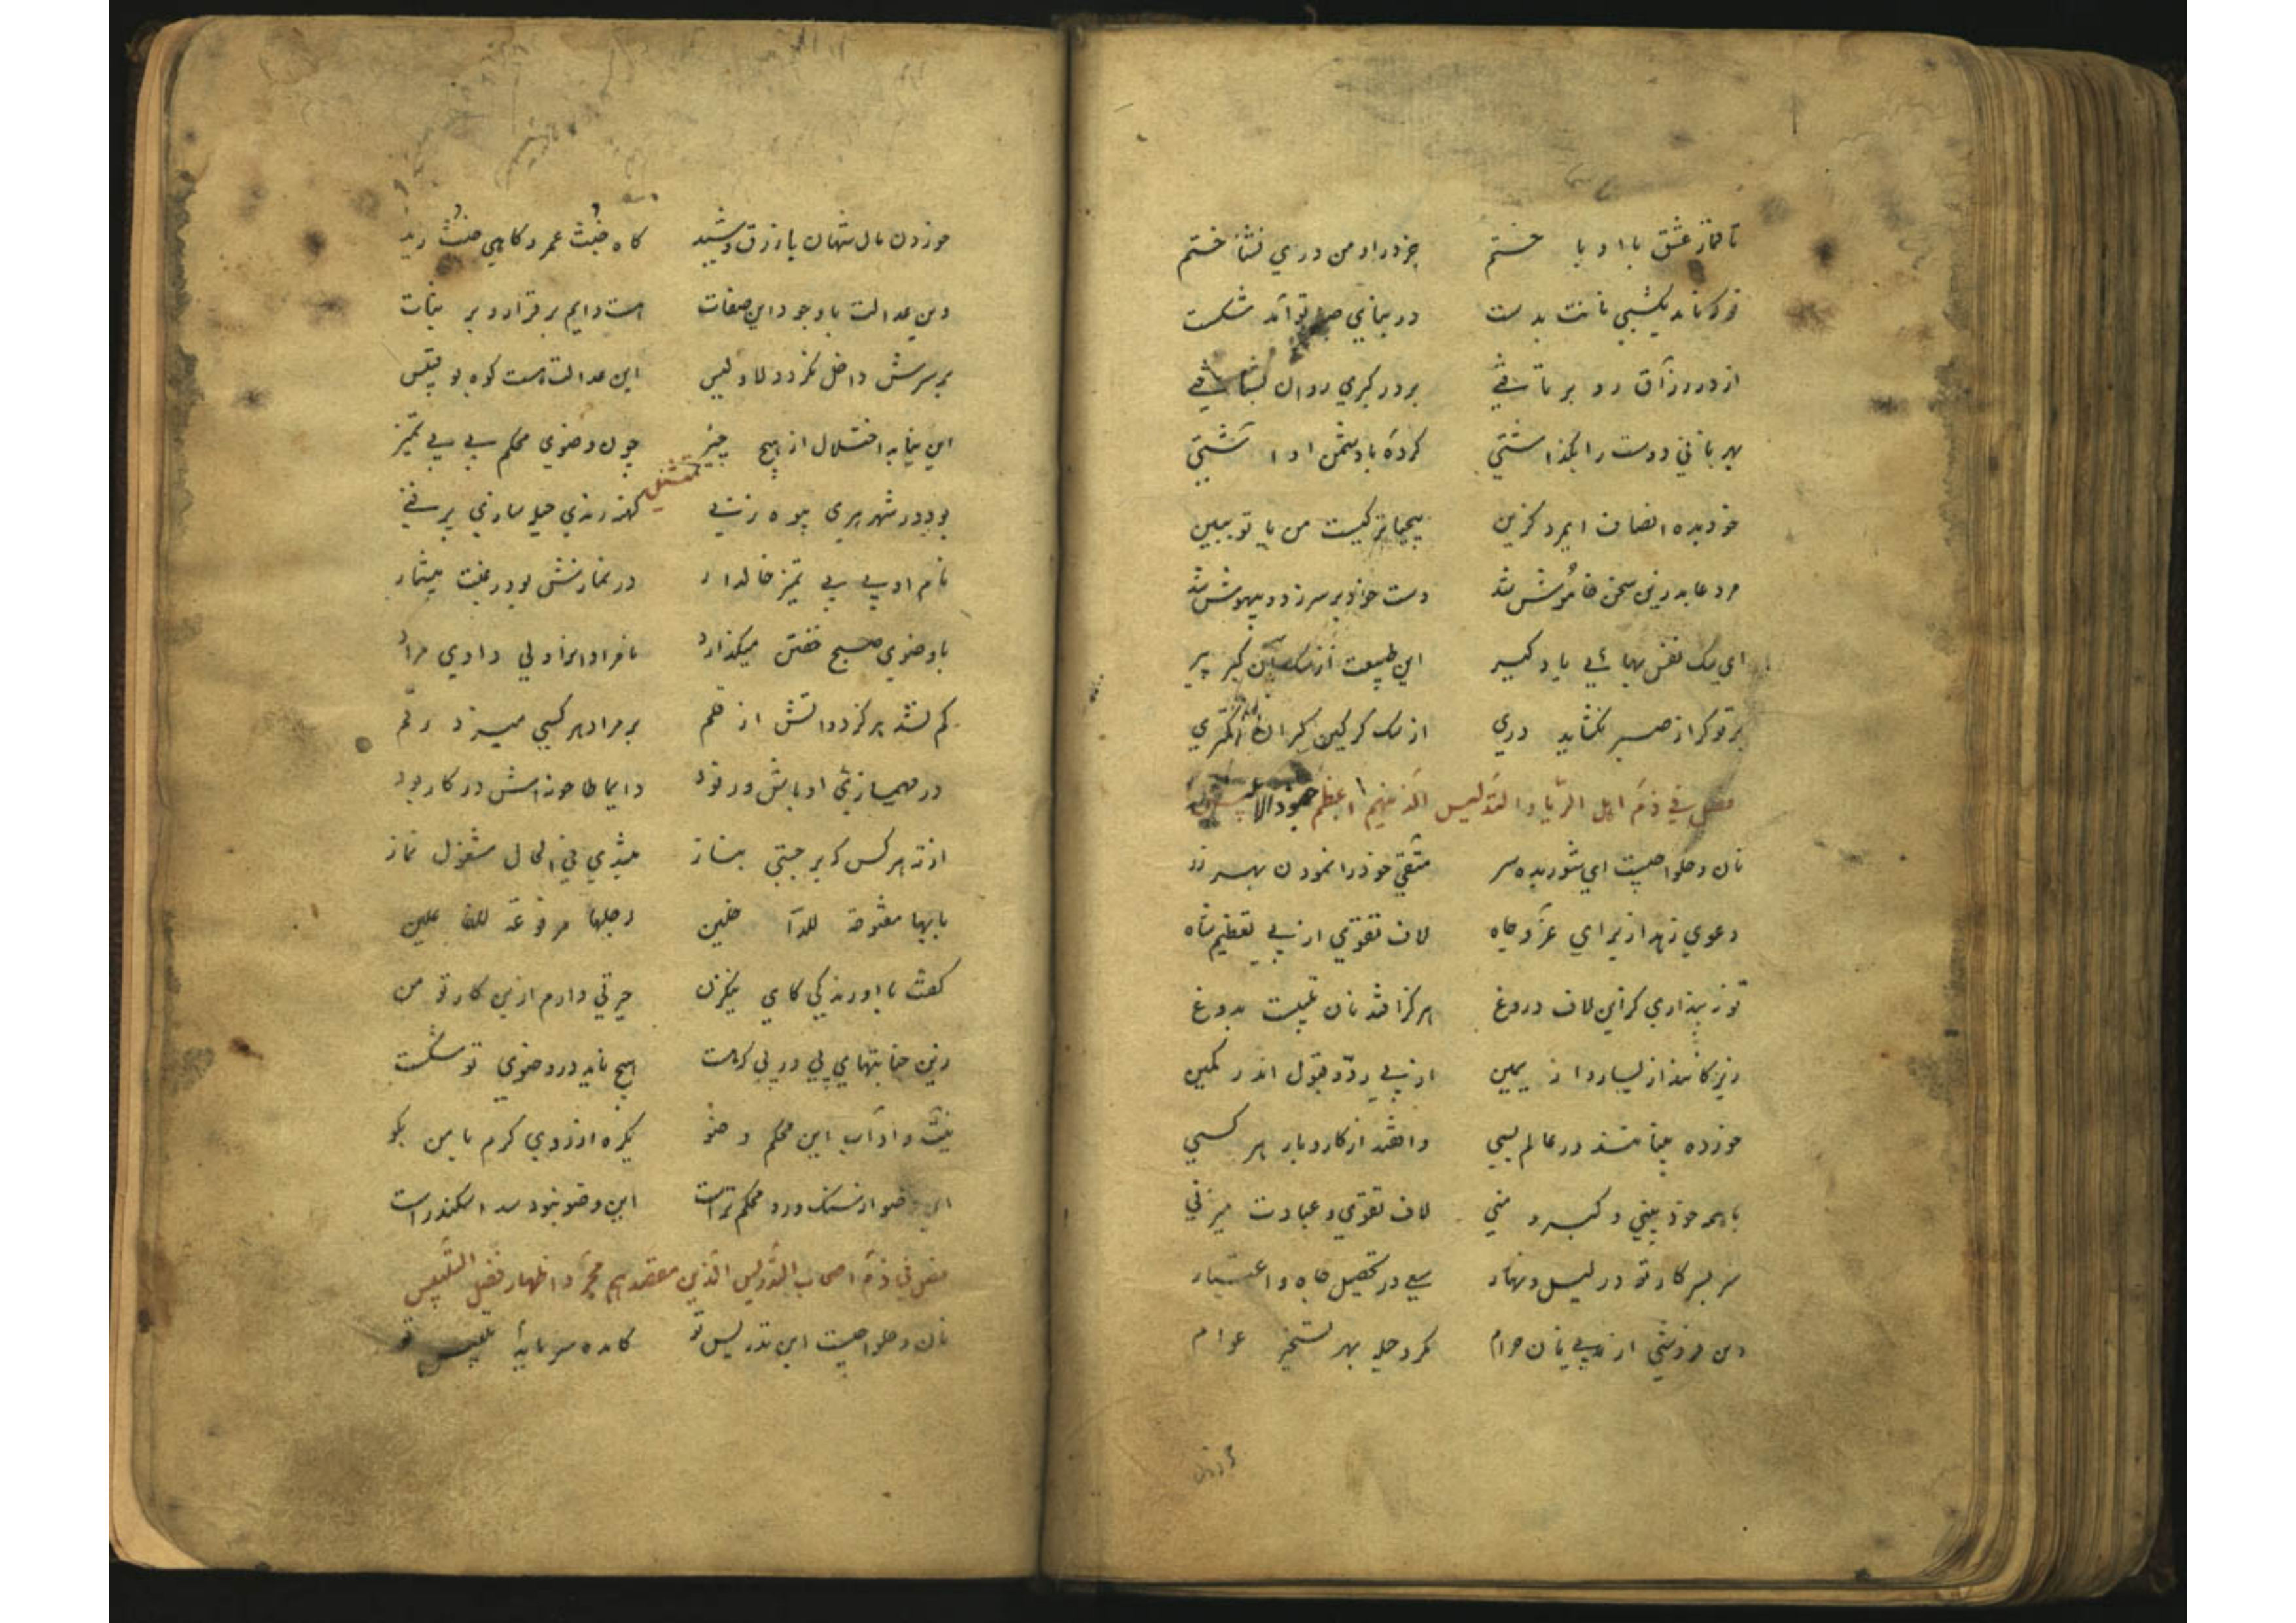 تا قمار عشق با او باختم جز در او من دری نشناختم
تو که نامد یکشبی نانت بدست در بنای صبر تو آمد شکست
از در رزاق رو بر تافتی بر در گبری روان بشتافتی
بهر نانی دوست را بگذاشتی کرده با دشمن او آشتی
خود بده انصاف ایمرد گزین بیحیاتر کیست من یا تو ببین
مرد عابد زین سخن خاموش شد دست خود بر سر زد و بیهوش شد
ای سک نفس بهائی یاد گیر این طبیعت از سک آن گبر پیر
بر تو گر از صبر نگشاید دری از سک گرگین گبران کمتری
فصل فی ذم اهل الریا و التدلیس الذینهم اعظم جنود الابلیس
نان و حلوا چیست ای شوریده سر متقی خود را نمودن بهر زر
دعوی زهد از برای عز و جاه لاف تقوی از پی تعظیم شاه
تو نپنداری کزین لاف دروغ هرگز افتد نان تلبیست بدوغ
زیرکانند از یسار و از یمین از پی رد و قبول اندر کمین
خورده بینانند در عالم بسی واقفند از کار و بار هر کسی
با همه خود بینی و کبر و منی لاف تقوی و عبادت میزنی
سر بسر کار تو در لیل و نهار سعی در تحصیل جاه و اعتبار
دین فروشی از پی نان حرام مکر و حیله بهر تسخیر عوام
خوردن مال شهان با زرق و شید گاه خبث عمرو گاهی خبث زید
وین عدالت با وجود این صفات هست دایم بر قرار و بر ثبات
بر سرش داخل نگردد لا و لیس این عدالت هست کوه بو قبیس
این بنا به اختلال از هیچ چیز چون وضوی محکم بی بی تمیز
تمثیل
بود در شهر هری بیوه زنی کهنه رندی حیله سازی پر فنی
نام او بی بی تمیز خالدار در نمازش بود رغبت بیشمار
با وضوی صبح خفتن میگذارد نامرادانرا ولی دادی مراد
کم نشد هرگز دواتش از قلم بر مراد هر کسی میزد رقم
در مهم سازی اوباش و رنود دایما طاحونه اش در کار بود
از ته هر کس که بر جستی بناز میشدی فی الحال مشغول نماز
بابها مفتوحة للداخلین رجلها مرفوعة للفاعلین
گفت با او رندکی کای نیکزن حیرتی دارم ازین کار تو من
زین جنابتهای پی در پی که هست هیچ ناید در وضوی تو شکست
نیت و آداب این محکم وضو یکره از روی کرم با من بگو
این وضو از سنک و رو محکم تر است این وضو نبود سد اسکندر است
فصل فی ذم اصحاب التدریس الذین مقصدهم مجرد اظهار فضل التلبیس
نان و حلوا چیست این تدریس تو کامده سرمایه تلبیس تو